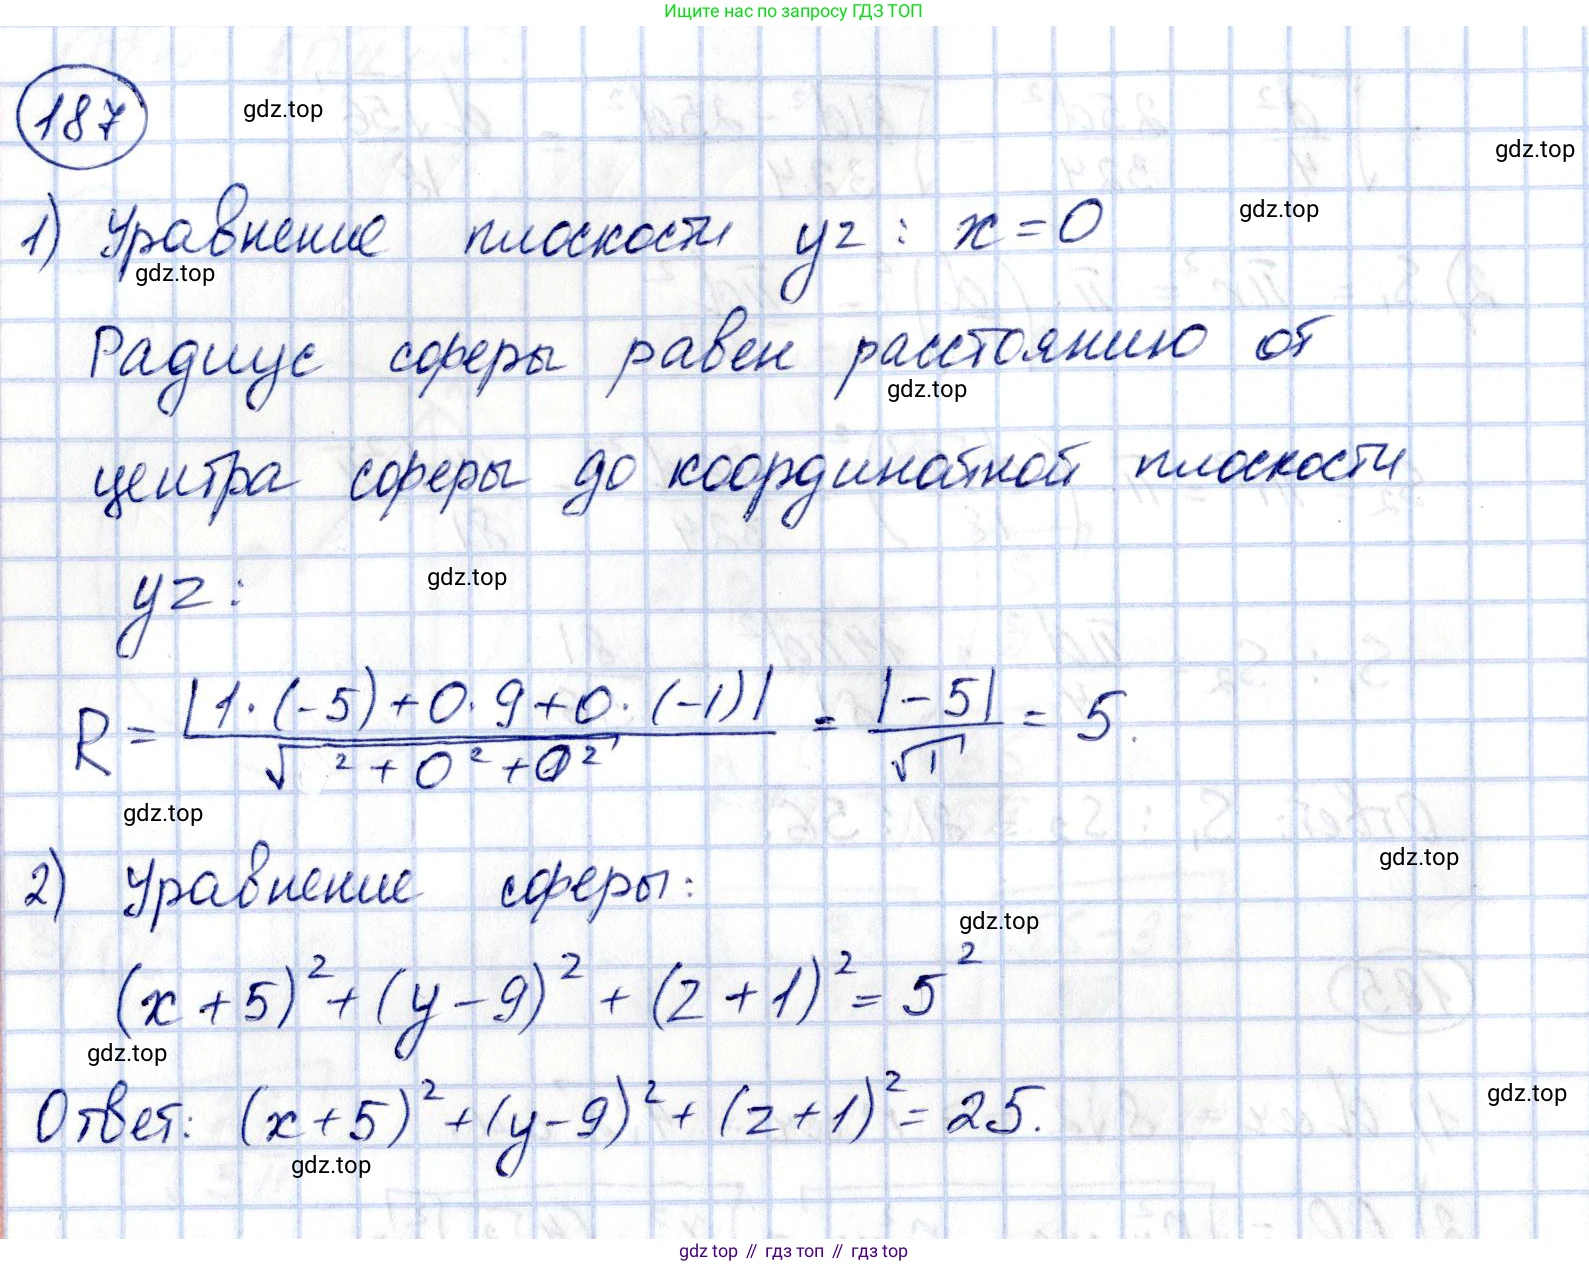 Ищите нас по запросу ГДЗ ТОП
187
gdz.top
gdz.top
1) Уравнение плоскости yz : x = 0
gdz.top
gdz.top
Радиус сферы равен расстоянию от
gdz.top
центра сферы до координатной плоскости
yz :
gdz.top
R = |1·(-5)+0·9+0·(-1)| / √ ²+0²+0² = |-5| / √1 = 5.
gdz.top
gdz.top
2) Уравнение сферы:
gdz.top
(x+5)²+(y-9)²+(z+1)²=5²
gdz.top
gdz.top
Ответ: (x+5)²+(y-9)²+(z+1)²=25.
gdz.top
gdz top // гдз топ // гдз top